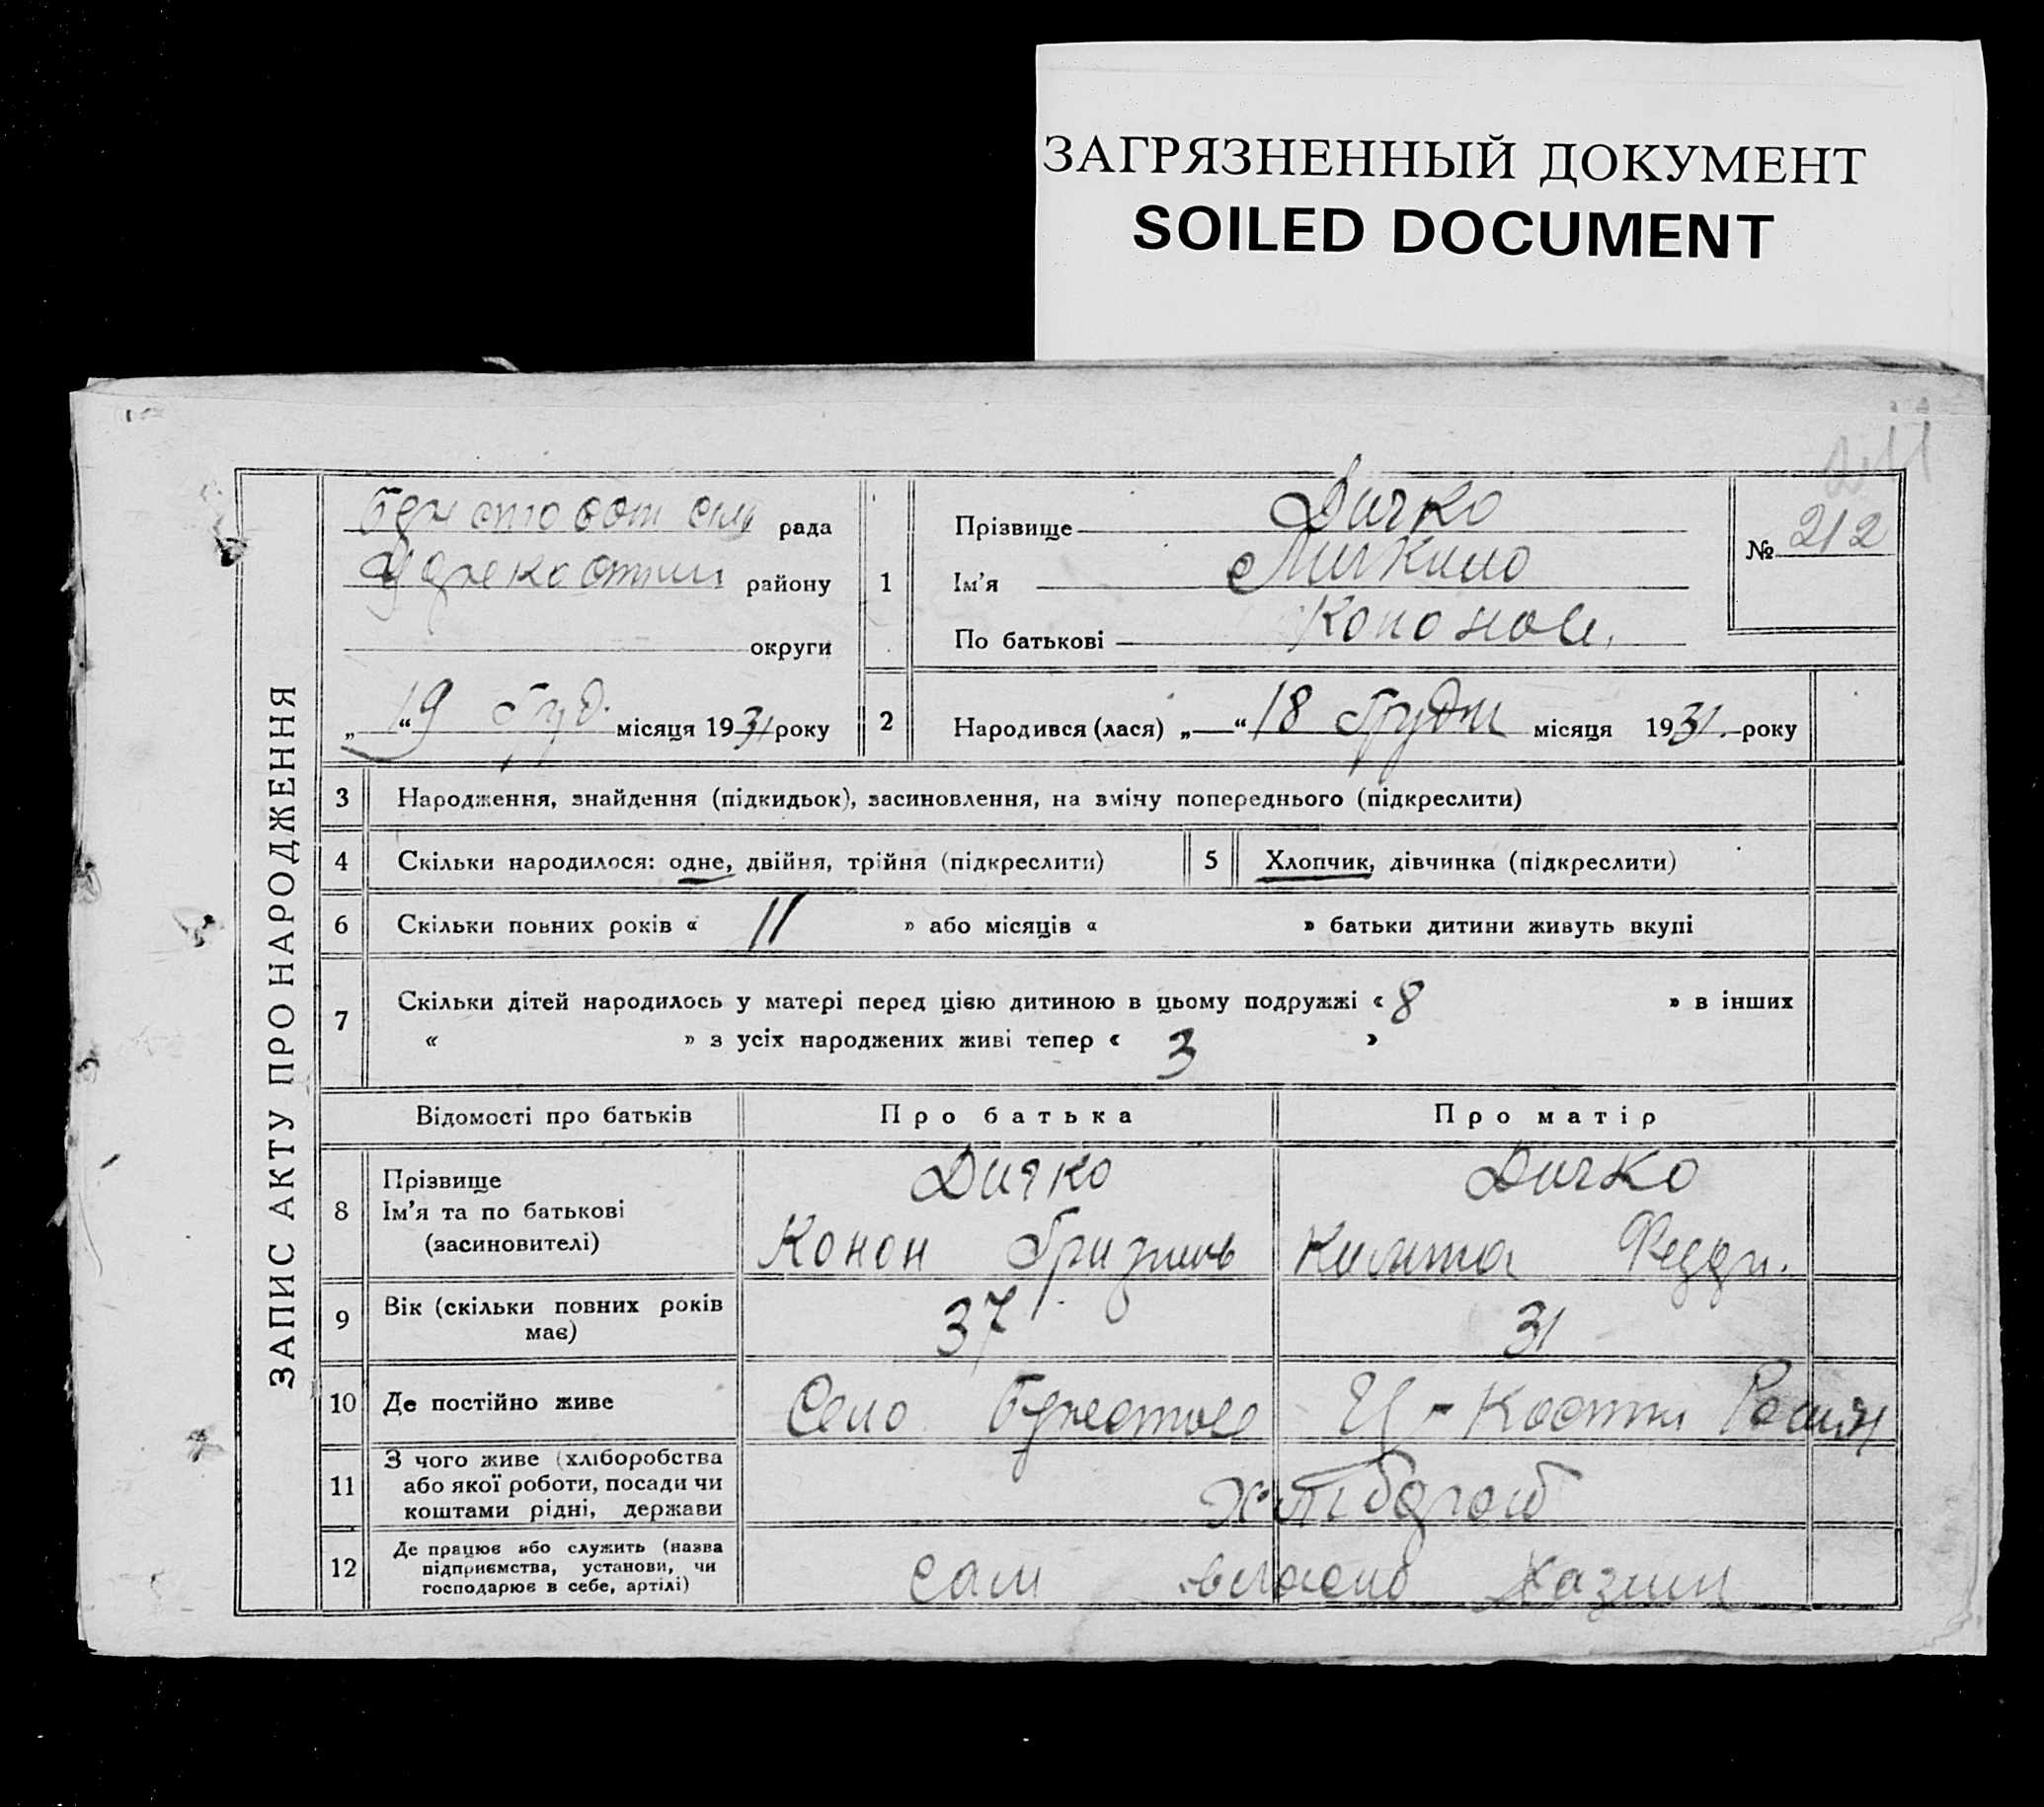 ЗАГРЯЗНЕННЫЙ ДОКУМЕНТ
SOILED DOCUMENT
ЗАПИС АКТУ ПРО НАРОДЖЕННЯ
рада
району
округи
„ 19 “ груд. місяця 1931 року
1
Прізвище Дичко
Ім'я
По батькові Кононов.
№ 212
2 Народився (лася) „ “ 18 грудн місяця 1931. року
3 Народження, знайдення (підкидьок), засиновлення, на зміну попереднього (підкреслити)
4 Скільки народилося: одне, двійня, трійня (підкреслити)
5 Хлопчик, дівчинка (підкреслити)
6 Скільки повних років « 11 » або місяців « » батьки дитини живуть вкупі
7 Скільки дітей народилось у матері перед цією дитиною в цьому подружжі « 8 » в інших
« » з усіх народжених живі тепер « 3 »
Відомості про батьків Про батька Про матір
8 Прізвище Дичко Дичко
Ім'я та по батькові Конон
(засиновителі)
9 Вік (скільки повних років має) 37 31
10 Де постійно живе Село
11 З чого живе (хліборобства
або якої роботи, посади чи
коштами рідні, держави
12 Де працює або служить (назва
підприємства, установи, чи
господарює в себе, артілі)
сам